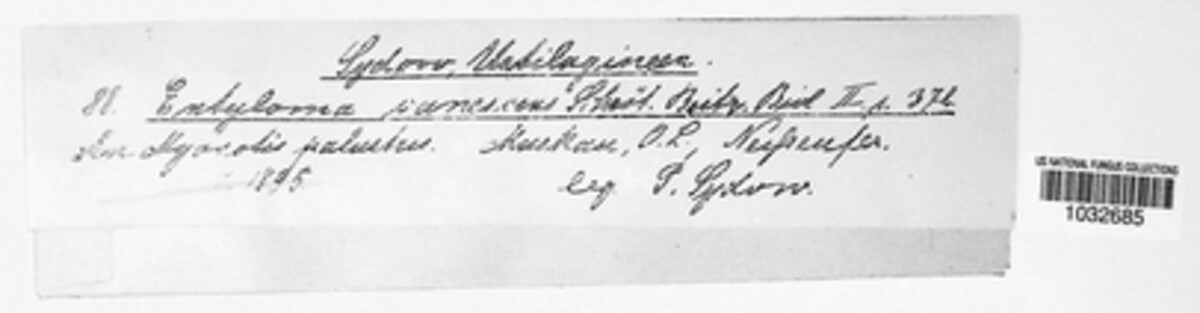 Sydow, Ustilagineen.
88. Entyloma canescens Schröt. Beitr. Biol II p. 372
Am Myosotis palustris. Muskau, O.L. Neißeufer.
1895 leg P. Sydow.
US NATIONAL FUNGUS COLLECTIONS
1032685